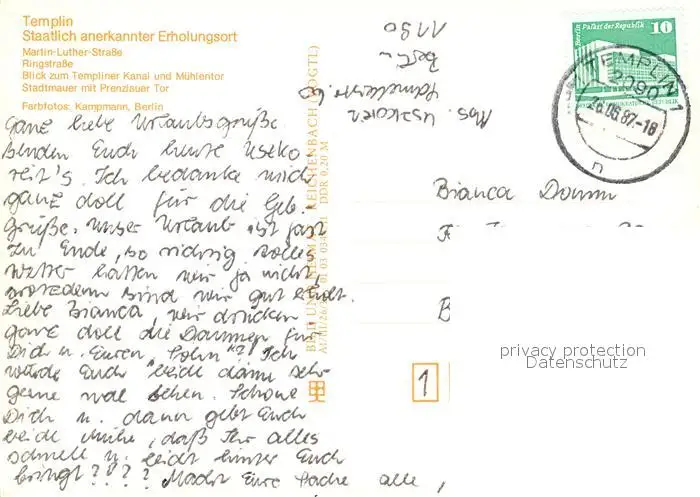 Templin
Staatlich anerkannter Erholungsort
Martin-Luther-Straße
Ringstraße
Blick zum Templiner Kanal und Mühlentor
Stadtmauer mit Prenzlauer Tor
Farbfotos: Kampmann, Berlin
Ganz liebe Urlaubsgrüße
senden Euch heute Usko
reit's. Ich bedanke mich
ganz doll für die Geb.-
grüße. Unser Urlaub ist fast
zu Ende, so richtig tolles
Wetter hatten wir ja nicht,
trotzdem sind wir gut erholt.
Liebe Bianca, wir drücken
ganz doll die Daumen für
Dich u. Euren "Sohn"? Ich
würde Euch beide dann sehr
gerne mal sehen. Schone
Dich u. dann gebt Euch
beide Mühe, daß Ihr alles
schnell u. leicht hinter Euch
bringt???? Macht Eure Sache alle,
Abs.
Berlin
1190
BILD UND HEIMAT REICHENBACH (VOGTL)
DDR 0,20 M
Berlin, Palast der Republik
10
TEMPLIN 1
2090
26.06.87-18
n
Bianca
B
1
privacy protection
Datenschutz